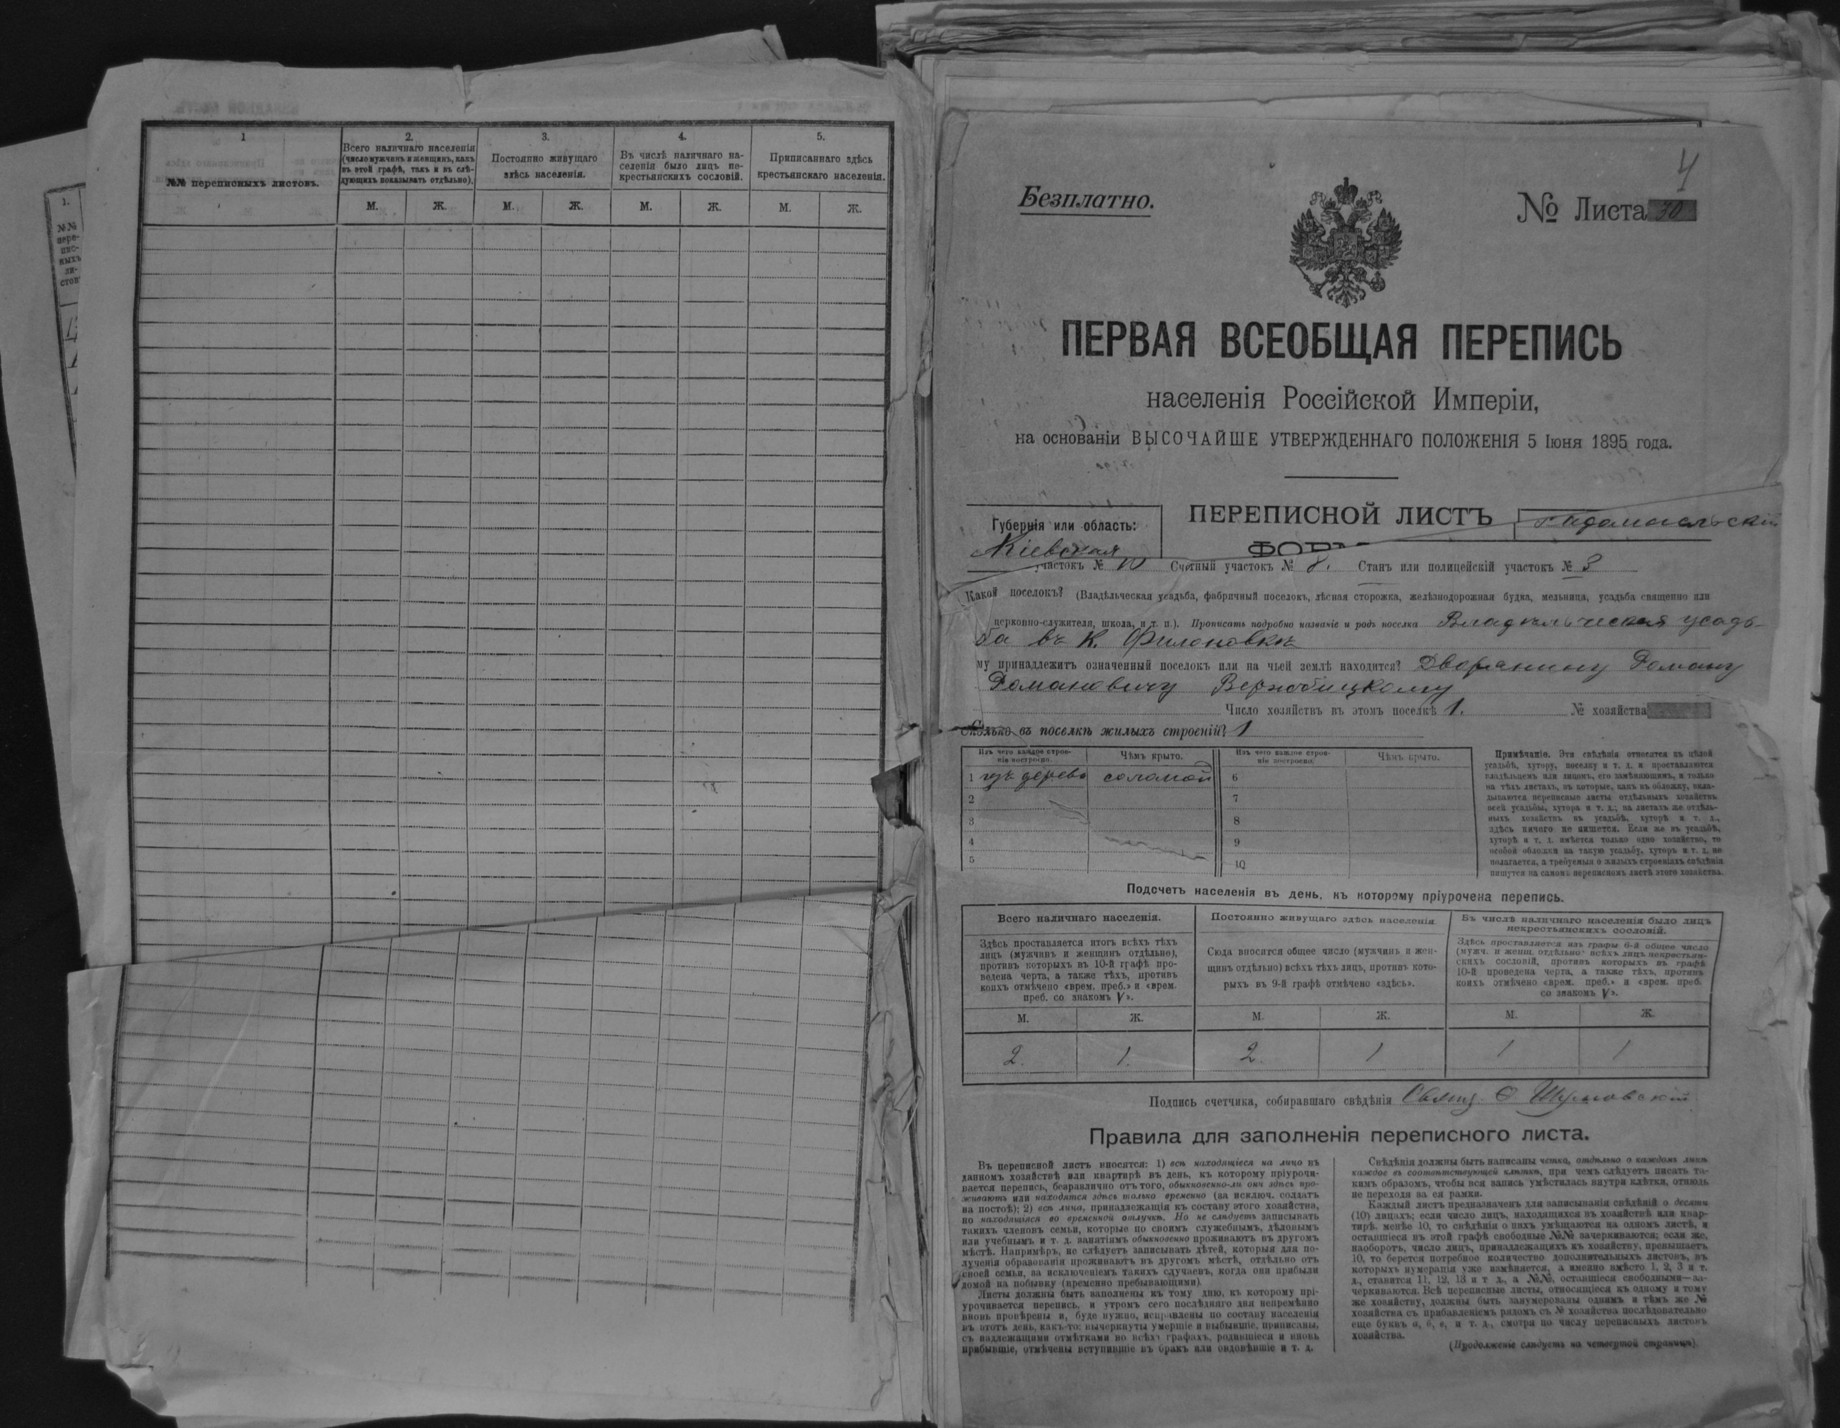 1
2.
3.
4.
5.
№№ переписныхъ листовъ.
Всего наличнаго населенія
(число мужчинъ и женщинъ, какъ
въ этой графѣ, такъ и въ слѣ-
дующихъ показывать отдѣльно).
Постоянно живущаго
здѣсь населенія.
Въ числѣ наличнаго на-
селенія было лицъ не-
крестьянскихъ сословій.
Приписаннаго здѣсь
крестьянскаго населенія.
М. Ж. М. Ж. М. Ж. М. Ж.
1.
№№
пере-
пис-
ныхъ
ли-
стовъ
4
Безплатно.
№ Листа 10
ПЕРВАЯ ВСЕОБЩАЯ ПЕРЕПИСЬ
населенія Россійской Имперіи,
на основаніи ВЫСОЧАЙШЕ УТВЕРЖДЕННАГО ПОЛОЖЕНІЯ 5 Іюня 1895 года.
Губернія или область:
Кіевская
ПЕРЕПИСНОЙ ЛИСТЪ
участокъ № 10 Счетный участокъ № 8. Станъ или полицейскій участокъ № 3
Какой поселокъ? (Владѣльческая усадьба, фабричный поселокъ, лѣсная сторожка, желѣзнодорожная будка, мельница, усадьба священно или
церковно-служителя, школа, и т. п.). Прописать подробно названіе и родъ поселка Владѣльческая усадь-
ба въ К. Филоновкѣ
му принадлежитъ означенный поселокъ или на чьей землѣ находится? Дворянину Роману
Романовичу
Число хозяйствъ въ этомъ поселкѣ 1. № хозяйства
Сколько въ поселкѣ жилыхъ строеній? 1
Изъ чего каждое строе-
ніе построено.
Чѣмъ крыто.
Изъ чего каждое строе-
ніе построено.
Чѣмъ крыто.
1 изъ дерева соломой 6
2 7
3 8
4 9
5 10
Примѣчаніе. Эти свѣдѣнія относятся къ цѣлой
усадьбѣ, хутору, поселку и т. д. и проставляются
владѣльцемъ или лицомъ, его замѣняющимъ, и только
на тѣхъ листахъ, въ которые, какъ въ обложку, вкла-
дываются переписные листы отдѣльныхъ хозяйствъ
всей усадьбы, хутора и т. д.; на листахъ же отдѣль-
ныхъ хозяйствъ въ усадьбѣ, хуторѣ и т. д.,
здѣсь ничего не пишется. Если же въ усадьбѣ,
хуторѣ и т. д. имѣется только одно хозяйство, то
особой обложки на такую усадьбу, хуторъ и т. д. не
полагается, а требуемыя о жилыхъ строеніяхъ свѣдѣнія
пишутся на самомъ переписномъ листѣ этого хозяйства.
Подсчетъ населенія въ день, къ которому пріурочена перепись.
Всего наличнаго населенія.
Здѣсь проставляется итогъ всѣхъ тѣхъ
лицъ (мужчинъ и женщинъ отдѣльно),
противъ которыхъ въ 10-й графѣ про-
ведена черта, а также тѣхъ, противъ
коихъ отмѣчено «врем. преб.» и «врем.
преб. со знакомъ V».
Постоянно живущаго здѣсь населенія
Сюда вносится общее число (мужчинъ и жен-
щинъ отдѣльно) всѣхъ тѣхъ лицъ, противъ кото-
рыхъ въ 9-й графѣ отмѣчено «здѣсь».
Въ числѣ наличнаго населенія было лицъ
некрестьянскихъ сословій.
Здѣсь проставляется изъ графы 6-й общее число
(мужч. и женщ. отдѣльно) всѣхъ лицъ некрестьян-
скихъ сословій, противъ которыхъ въ графѣ
10-й проведена черта, а также тѣхъ, противъ
коихъ отмѣчено «врем. преб.» и «врем. преб.
со знакомъ V».
М. Ж. М. Ж. М. Ж.
2. 1. 2. 1 1 1
Подпись счетчика, собиравшаго свѣдѣнія Свящ. Ѳ Шумовскій
Правила для заполненія переписного листа.
Въ переписной листъ вносятся: 1) всѣ находящіеся на лицо въ
данномъ хозяйствѣ или квартирѣ въ день, къ которому пріурочи-
вается перепись, безразлично отъ того, обыкновенно-ли они здѣсь про-
живаютъ или находятся здѣсь только временно (за исключ. солдатъ
на постоѣ); 2) всѣ лица, принадлежащія къ составу этого хозяйства,
но находящіяся во временной отлучкѣ. Но не слѣдуетъ записывать
такихъ членовъ семьи, которые по своимъ служебнымъ, дѣловымъ
или учебнымъ и т. д. занятіямъ обыкновенно проживаютъ въ другомъ
мѣстѣ. Напримѣръ, не слѣдуетъ записывать дѣтей, которыя для по-
лученія образованія проживаютъ въ другомъ мѣстѣ, отдѣльно отъ
своей семьи, за исключеніемъ такихъ случаевъ, когда они прибыли
домой на побывку (временно пребывающими).
Листы должны быть заполнены къ тому дню, къ которому прі-
урочивается перепись, и утромъ сего послѣдняго дня непремѣнно
вновь провѣрены и, буде нужно, исправлены по составу населенія
въ этотъ день, какъ-то: вычеркнуты умершіе и выбывшіе, приписаны,
съ надлежащими отмѣтками во всѣхъ графахъ, родившіеся и вновь
прибывшіе, отмѣчены вступившіе въ бракъ или овдовѣвшіе и т. д.
Свѣдѣнія должны быть написаны четко, отдѣльно о каждомъ лицѣ
каждое въ соотвѣтствующей клѣткѣ, при чемъ слѣдуетъ писать та-
кимъ образомъ, чтобы вся запись умѣстилась внутри клѣтки, отнюдь
не переходя за ея рамки.
Каждый листъ предназначенъ для записыванія свѣдѣній о десяти
(10) лицахъ; если число лицъ, находящихся въ хозяйствѣ или квар-
тирѣ, менѣе 10, то свѣдѣнія о нихъ умѣщаются на одномъ листѣ, и
оставшіеся въ этой графѣ свободные №№ зачеркиваются; если же,
наоборотъ, число лицъ, принадлежащихъ къ хозяйству, превышаетъ
10, то берется потребное количество дополнительныхъ листовъ, въ
которыхъ нумерація уже измѣняется, а именно вмѣсто 1, 2, 3 и т.
д., ставится 11, 12, 13 и т д., а №№, оставшіеся свободными—за-
черкиваются. Всѣ переписные листы, относящіеся къ одному и тому
же хозяйству, должны быть занумерованы однимъ и тѣмъ же №
хозяйства съ прибавленіемъ рядомъ съ № хозяйства послѣдовательно
еще буквъ а, б, в, и т. д., смотря по числу переписныхъ листовъ
хозяйства.
(Продолженіе слѣдуетъ на четвертой страницѣ).